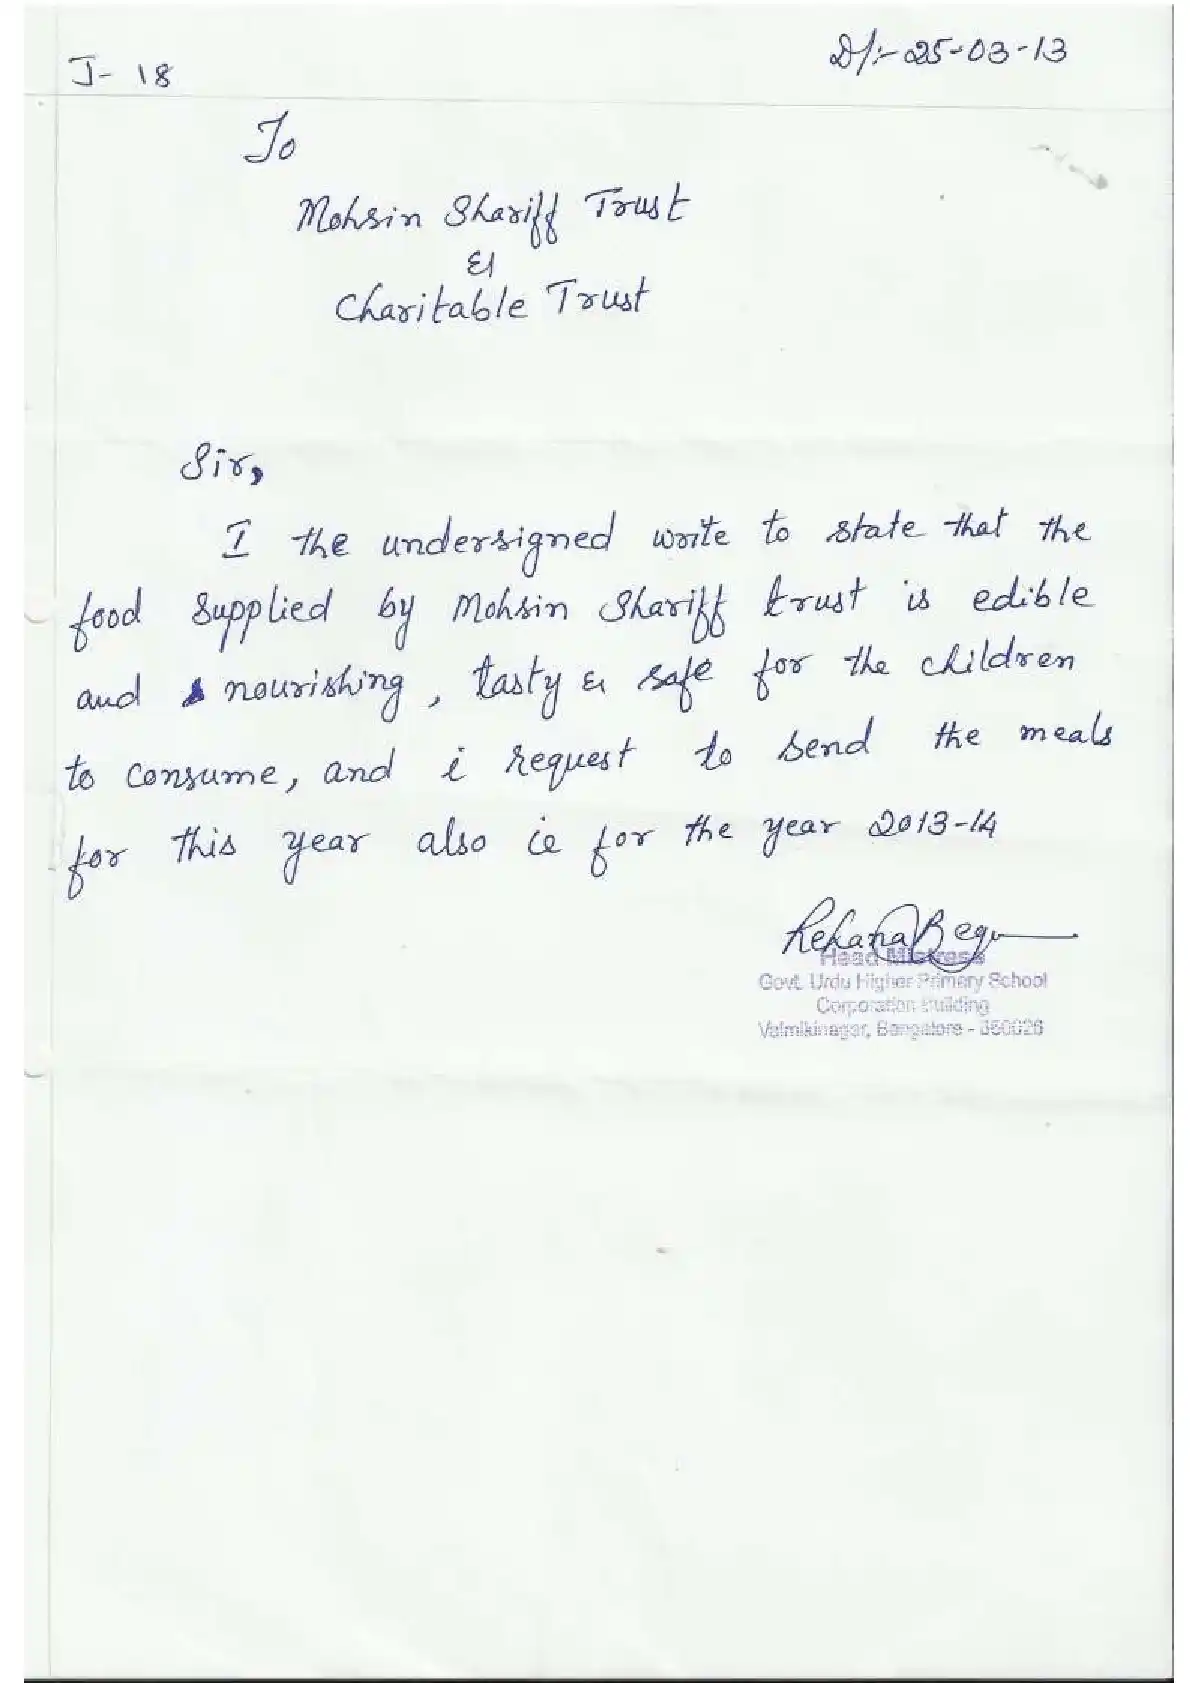 J- 18
D/:- 25-03-13
To
Mohsin Shariff Trust
&
Charitable Trust
Sir,
I the undersigned write to state that the
food supplied by Mohsin Shariff trust is edible
and nourishing, tasty & safe for the children
to consume, and i request to send the meals
for this year also ie for the year 2013-14
Rehana Begu
Head Mistress
Govt. Urdu Higher Primary School
Corporation Building
Valmikinagar, Bangalore - 560026